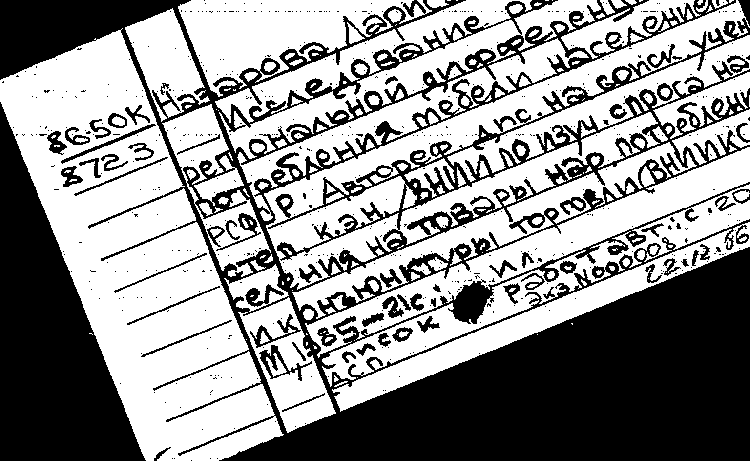 8650К
8723
Назарова, Лариса
Исследование
региональной дифференц
потребления мебели населением
РСФСР: Автореф. дис. на соиск. учен
степ. к.э.н. / ВНИИ по изуч. спроса на
селения на товары нар. потреблен
и конъюнктуры торговли (ВНИИКС
М., 1985.- 21с.: ил.
Список работ авт.: с. 20
Дсп. Экз. N000008.
22.12.86